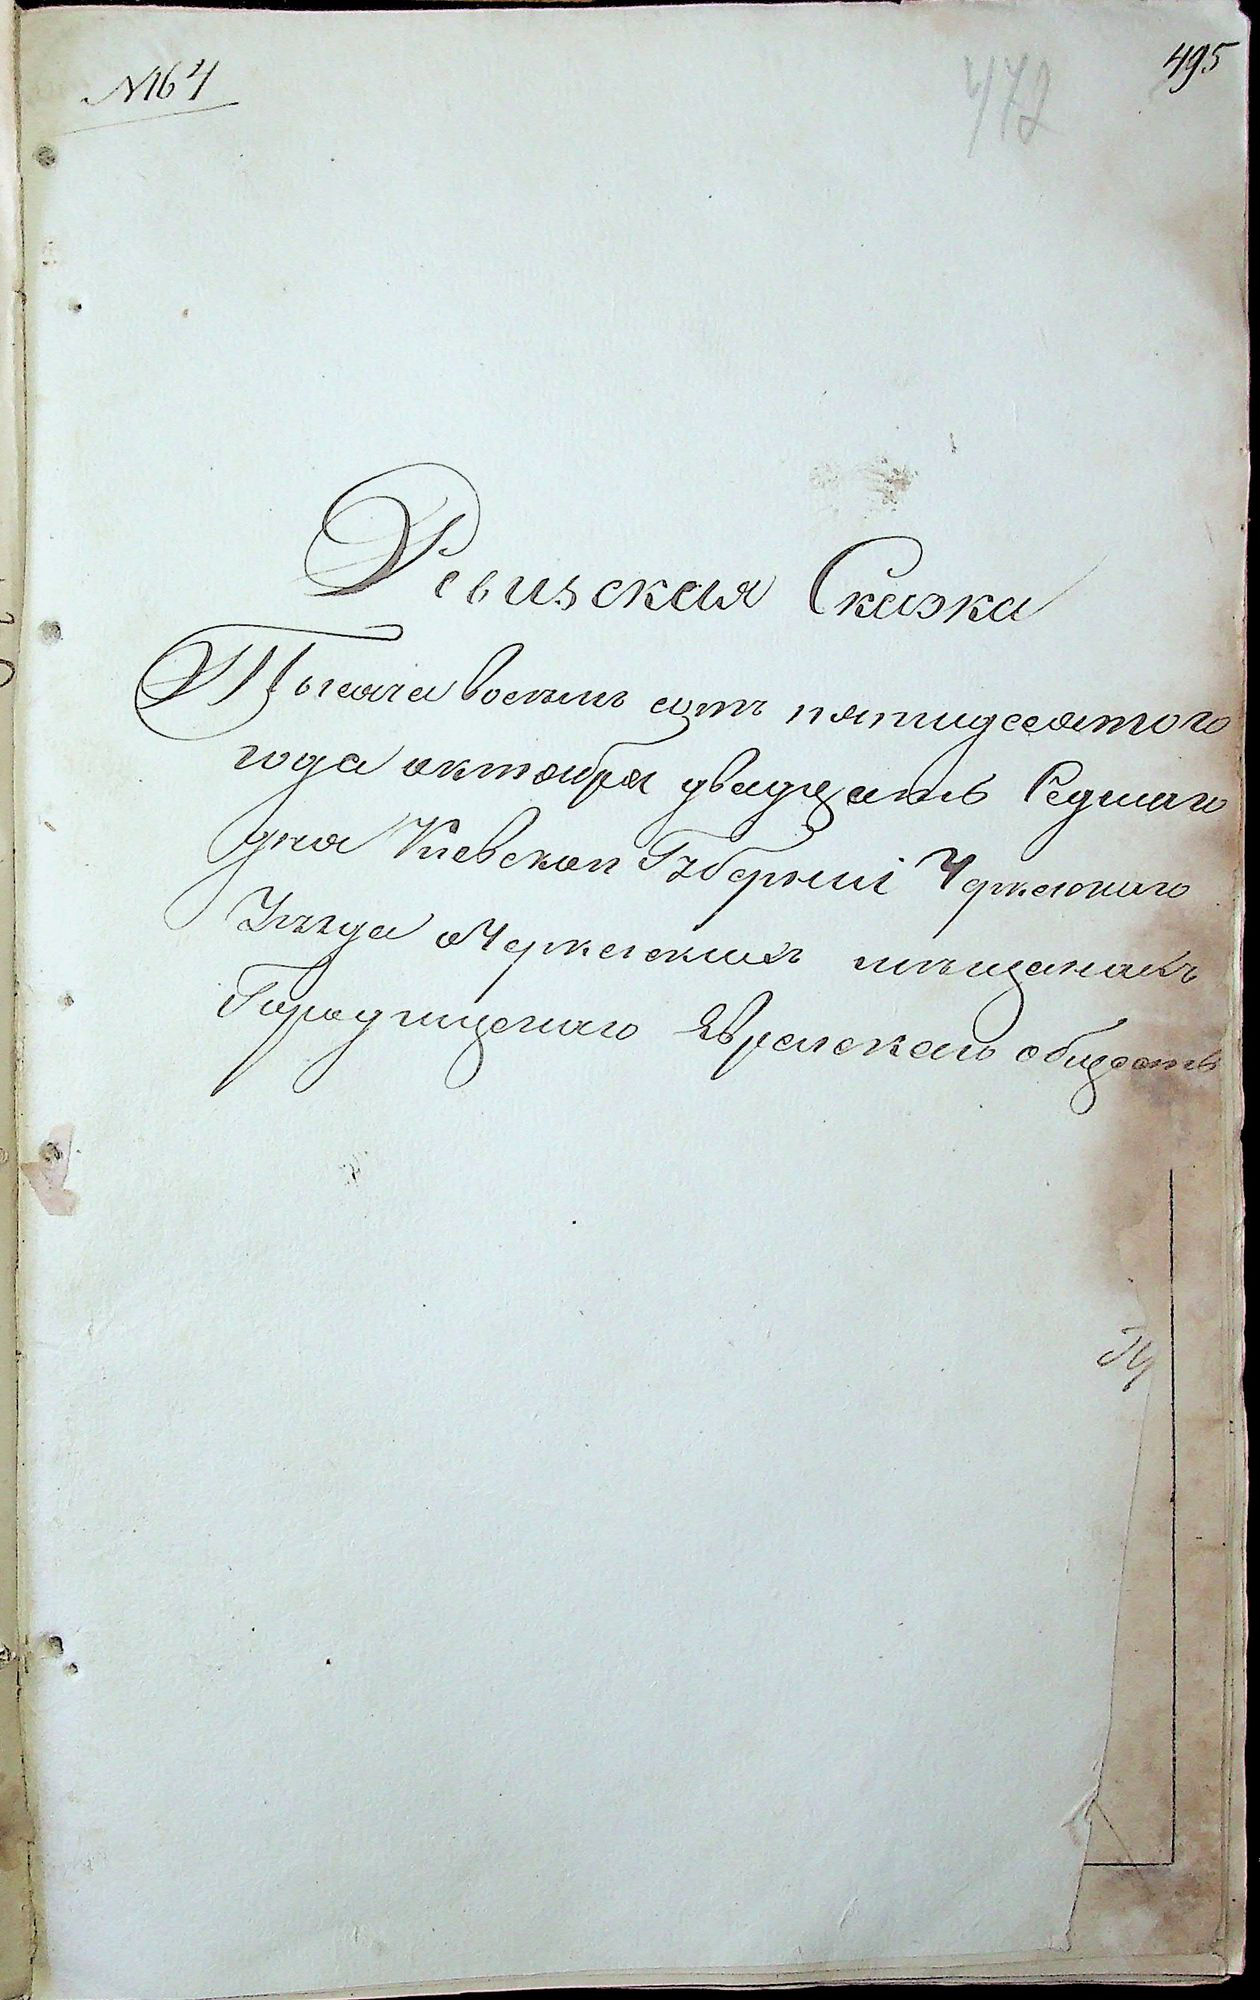 № 64
472
495
Ревизская Сказка
Тысяча восемь сотъ пятидесятого
года октября двадцать Седмаго
дня Киевской Губерніи Черкаского
Уезда о Черкаскихъ мещанахъ
Городищенского Еврейского общества
Пр